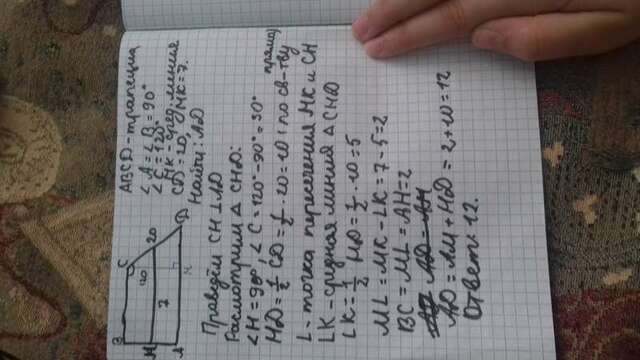 ABCD - трапеция
∠A = ∠B = 90°
∠C = 120°
MK - сред. линия
CD = 20, MK = 7.
Найти: AD
B
C
120
20
M
7
A
H
D
Проведём CH ⊥ AD
Рассмотрим △ CHD:
∠H = 90°, ∠C = 120° - 90° = 30°
HD = ½ CD = ½ · 20 = 10 (по св-тву прямоу
L - точка пересечения MK и CH
LK - средняя линия △ CHD
LK = ½ HD = ½ · 10 = 5
ML = MK - LK = 7 - 5 = 2
BC = ML = AH = 2
AD = AH
AD = AH + HD = 2 + 10 = 12
Ответ: 12.